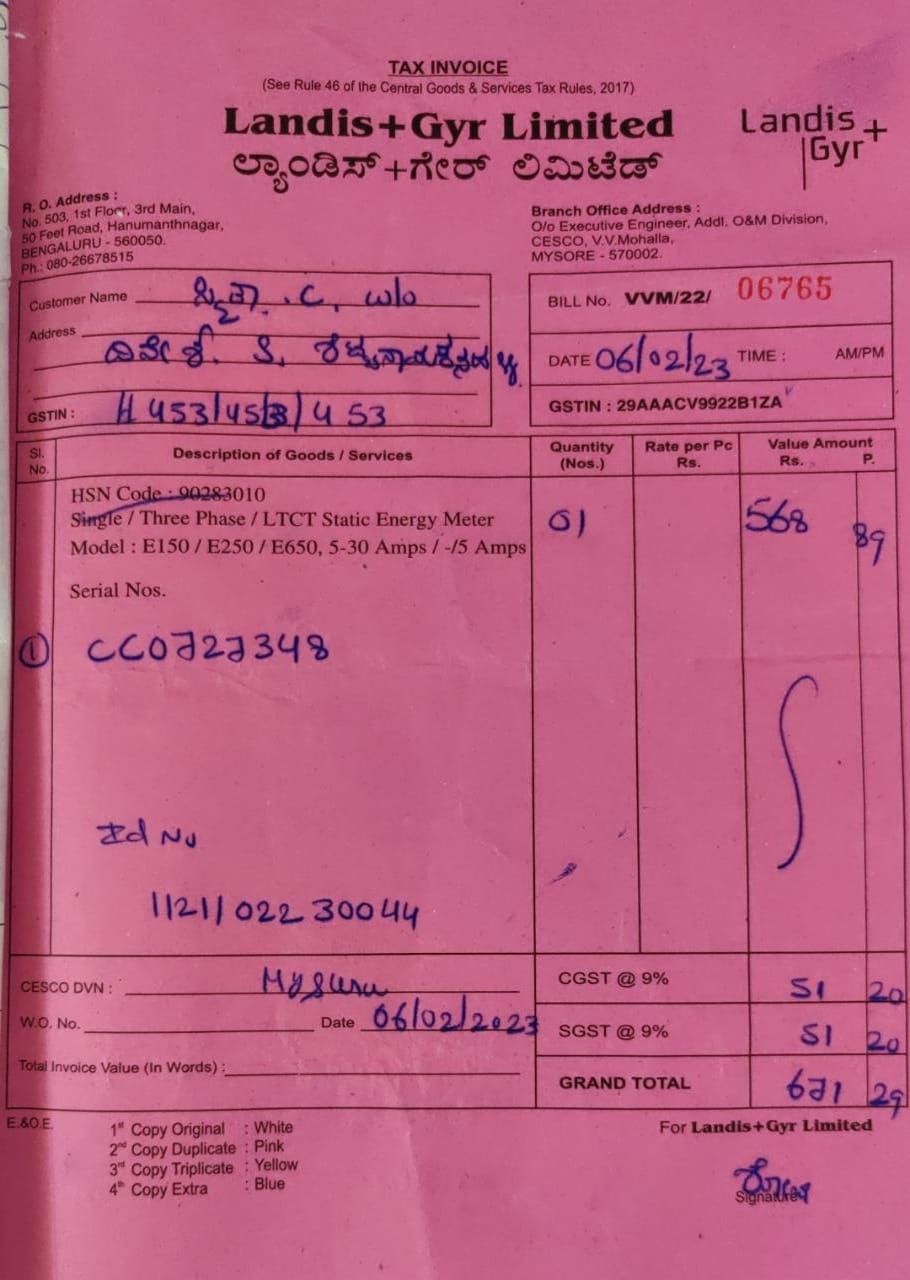 TAX INVOICE
(See Rule 46 of the Central Goods & Services Tax Rules, 2017)
Landis+Gyr Limited
ಲ್ಯಾಂಡಿಸ್+ಗೇರ್ ಲಿಮಿಟೆಡ್
Landis+
Gyr
R. O. Address :
No. 503, 1st Floor, 3rd Main,
50 Feet Road, Hanumanthnagar,
BENGALURU - 560050.
Ph.: 080-26678515
Branch Office Address :
O/o Executive Engineer, Addl. O&M Division,
CESCO, V.V.Mohalla,
MYSORE - 570002.
Customer Name .C, w/o
Address
GSTIN : 
BILL No. VVM/22/ 06765
DATE 06/02/23 TIME : AM/PM
GSTIN : 29AAACV9922B1ZA
Sl. No. Description of Goods / Services Quantity (Nos.) Rate per Pc Rs. Value Amount Rs. P.
HSN Code : 90283010
Single / Three Phase / LTCT Static Energy Meter 01 568 89
Model : E150 / E250 / E650, 5-30 Amps / -/5 Amps
Serial Nos.
① CC0727348
Id No
1121/02230044
CESCO DVN : Mysuru
W.O. No. Date 06/02/2023
Total Invoice Value (In Words) :
CGST @ 9% 51 20
SGST @ 9% 51 20
GRAND TOTAL 671 29
E.&O.E.
1st Copy Original : White
2nd Copy Duplicate : Pink
3rd Copy Triplicate : Yellow
4th Copy Extra : Blue
For Landis+Gyr Limited
Signature